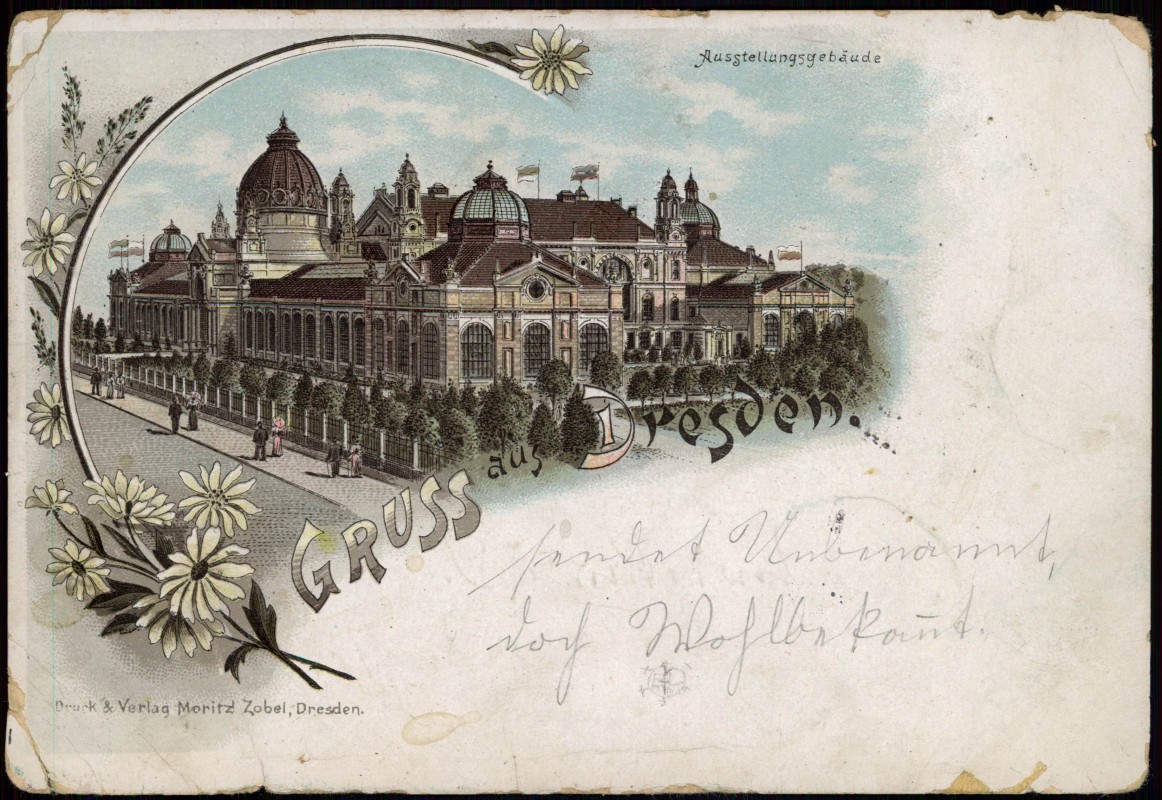 Ausstellungsgebäude
GRUSS aus Dresden.
sendet Unbenannt,
doch Wohlbekan̄t.
Druck & Verlag Moritz Zobel, Dresden.